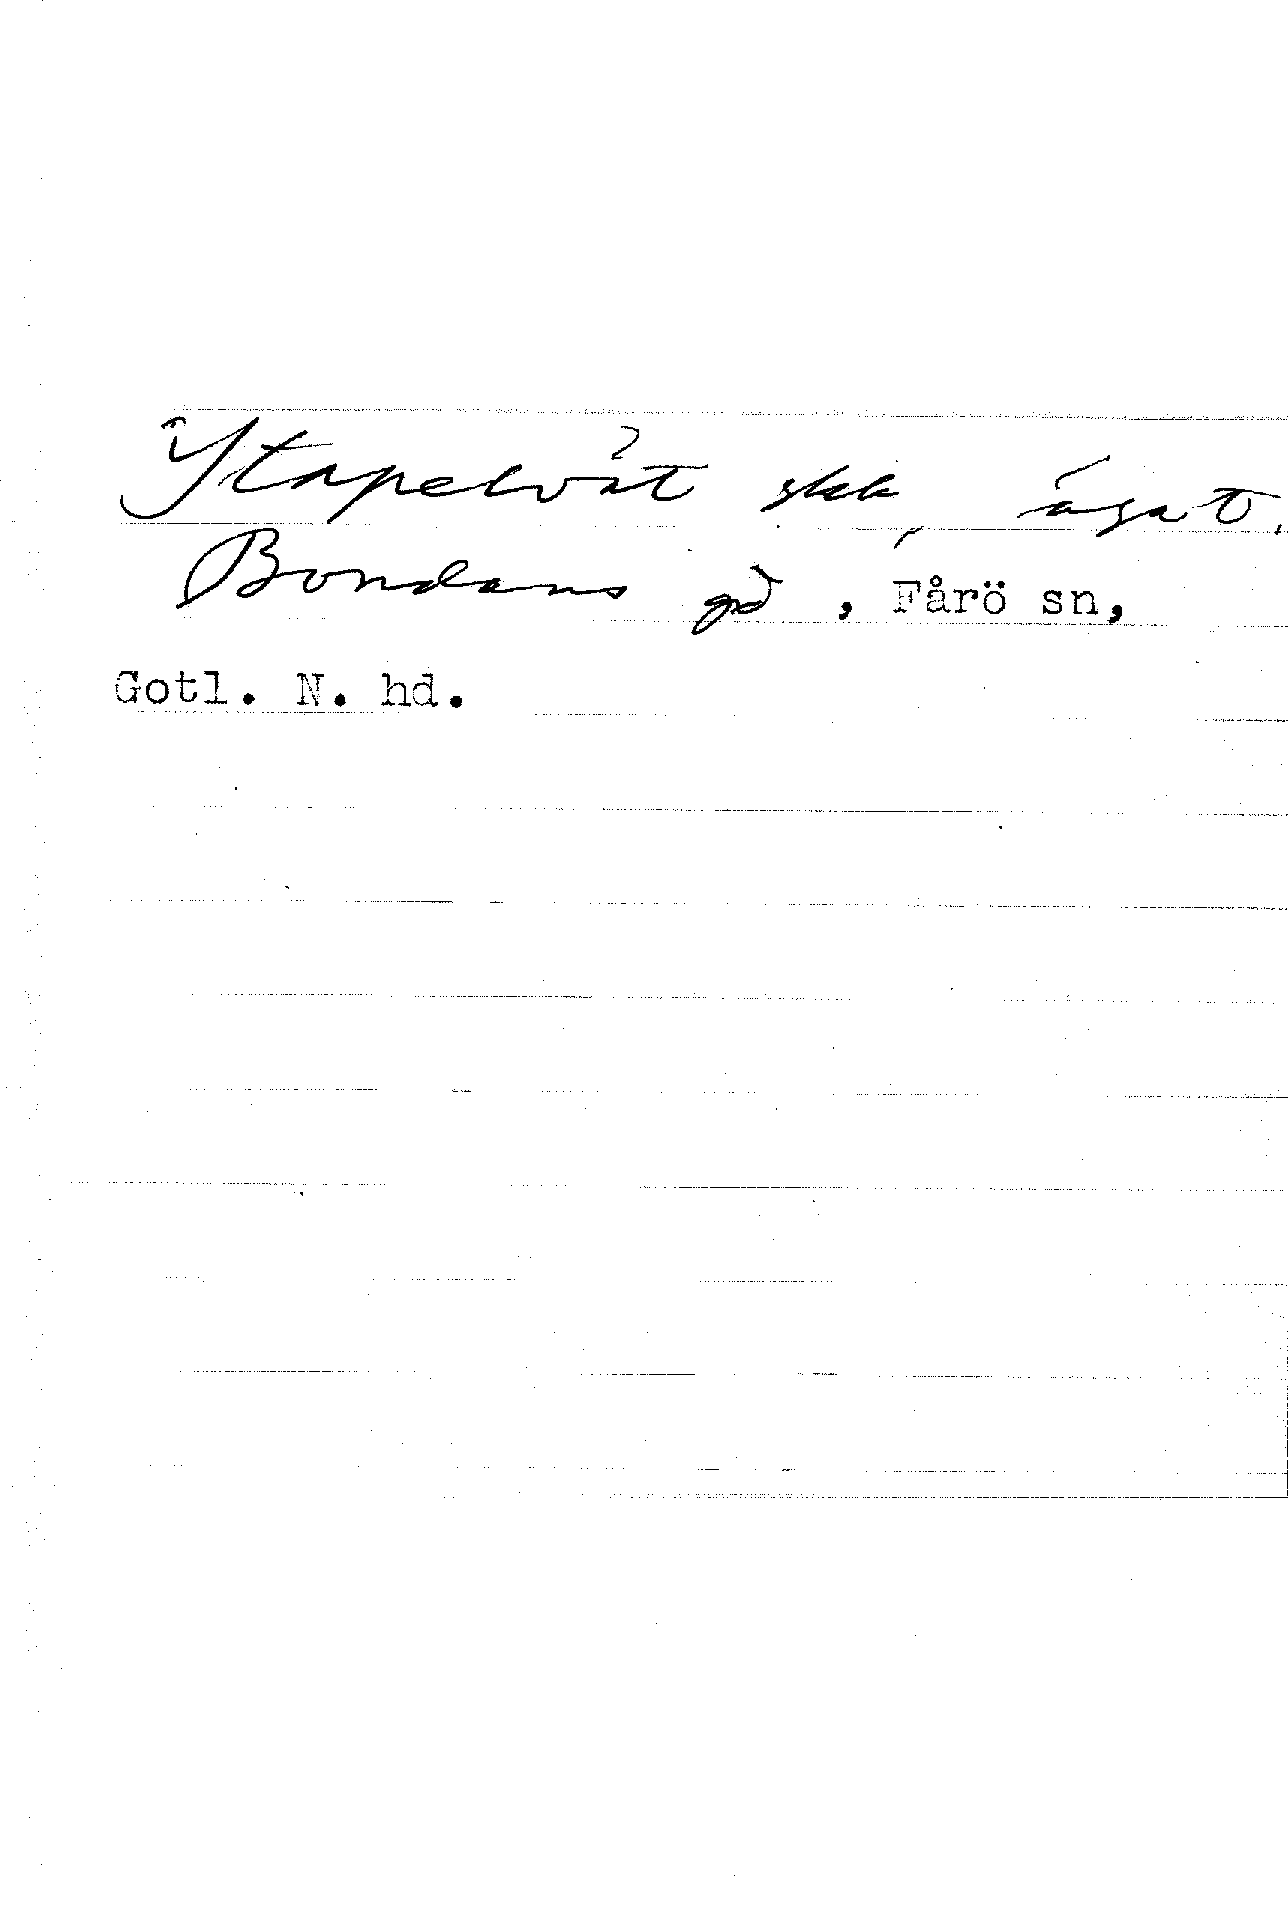 Stapelvåt skk, ägat.
Bondans gd, Fårö sn,
Gotl. N. hd.